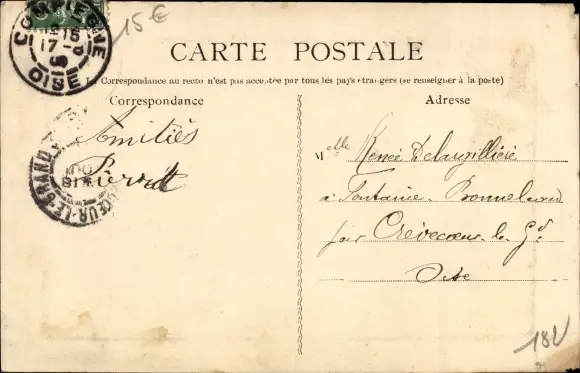 COMPIEGNE
17-8
OISE
15€
CARTE POSTALE
La Correspondance au recto n'est pas acceptée par tous les pays étrangers (se renseigner à la poste)
Correspondance
Adresse
Amitiés
CŒUR-LE-GRAND
Melle Renée Delargillière
à Fontaine-Bonneleau
par Crèvecœur-le-Gd
Oise